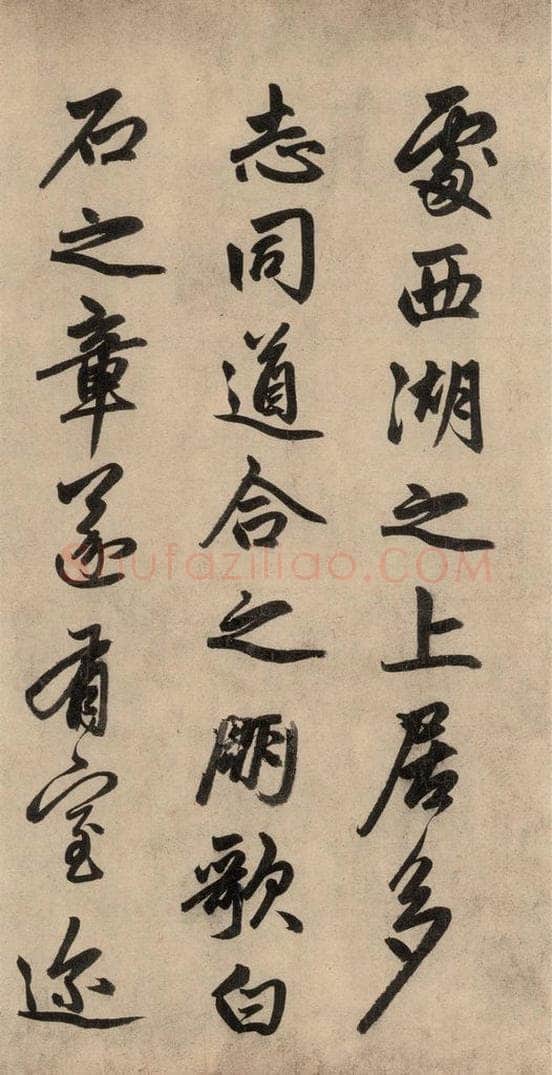 處西湖之上居多
志同道合之朋歌白
石之章遂有室迩
shufaziliao.COM